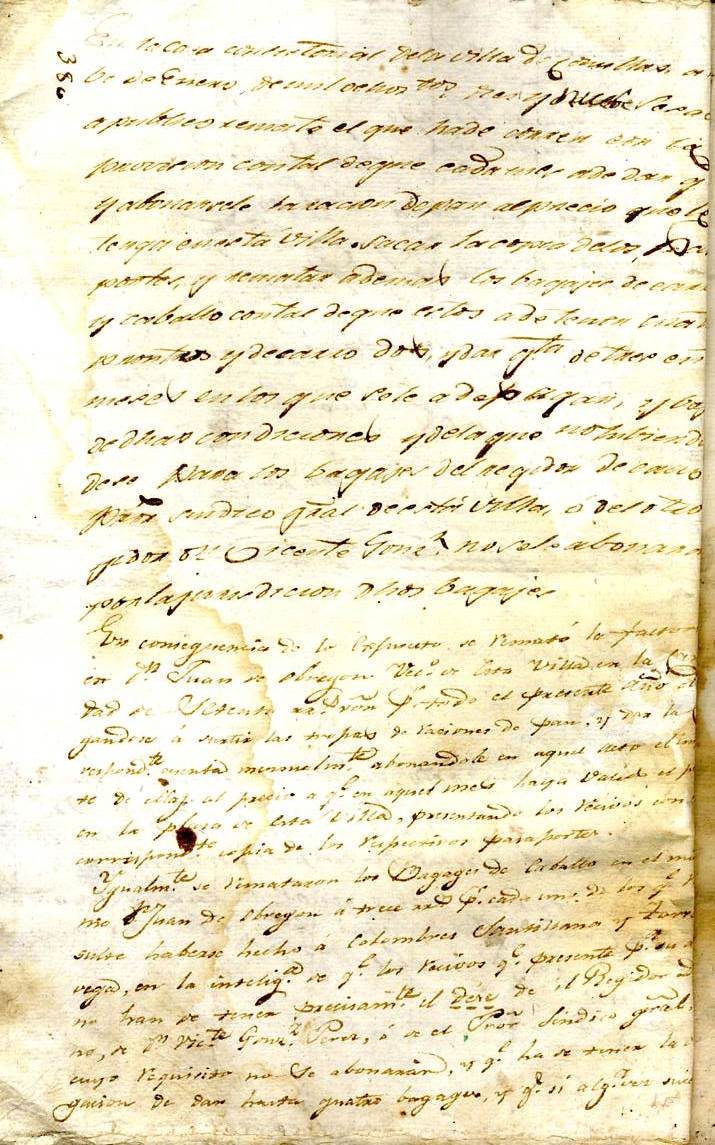 380
En la casa consistorial de la villa de Comillas a
de Enero, de mil ochos.tos treze y nuebe se sa
a publico remate el que hade correr con la
provision con tal de que cada mes a de dar q
y abonarsele la racion de pan al precio que le
tenga en esta villa, sacar la copia de los, Pa
portes, y rematar ademas los bagajes de carro
y caballo con tal de que estos a de tener cuat
prontos y de carro dos, y dar q.ta de tres en
meses en los que se le a de pagar, y baj
de dhas condiciones y de la que no habiend
dese para los bagajes del regidor decano
Pror. sindico gral de esta villa, ó del otro
gidor Dn Vicente Gonz.z no se le abonara
por la jurisdicion dhos bagajes
En consequencia de lo Espuesto se remató la factor
en Dn Juan de Obregon Vec.o de esta Villa, en la
dad de Setenta rr.s Von p.r todo el presente año ob
gandose á surtir las tropas de raciones de pan, y dar la
respond.te cuenta mensualm.te abonandole en aquel acto el im
te de ellas al precio a q.e en aquel mes haya valido el p
en la plaza de esta Villa, presentando los recivos con
correspond.te copia de los respectivos pasaportes.
Ygualm.te se remataron los Bagages de Caballo en el mis
mo Dn Juan de Obregon á trece rr.s p.r cada uno de los q.e r
sulte haberse hecho á Colombres Santillana y Torre
vega, en la intelig.a de q.e los recivos q.e presente p.a su a
no han de tener precisam.te el Dese de el Regidor de
no, de Dn Vic.te Gonz.z Perez, ó de el Pror Sindico gral,
cuyo requisito no se abonarán, y q.e ha de tener la o
gacion de dar hasta quatro bagages, y q.e si alg.a vez